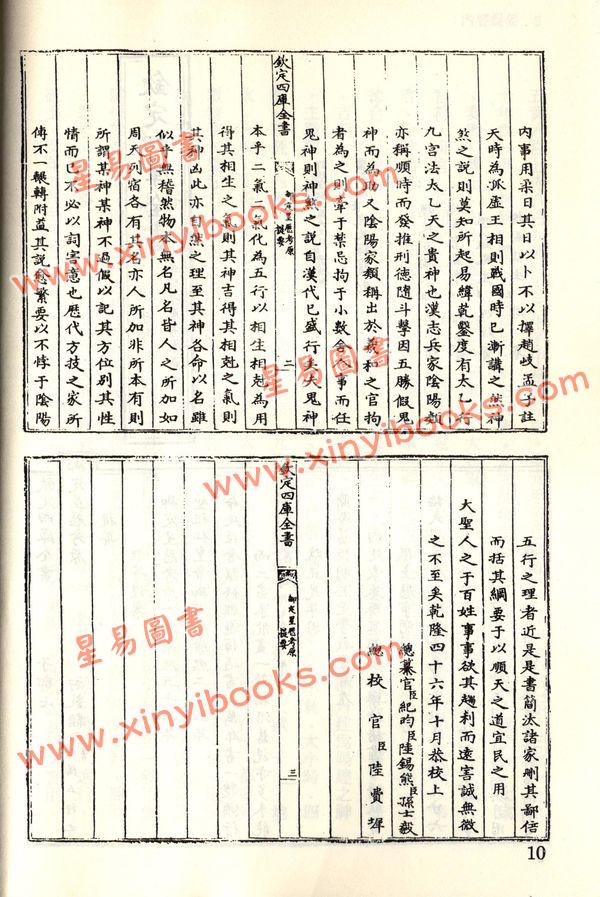 內事用柔日其日以卜不以擇趙岐孟子註
天時為孤虛王相則戰國時已漸講之然神
煞之說則莫知所起易緯乾鑿度有太乙行
九宮法太乙天之貴神也漢志兵家陰陽類
亦稱順時而發推刑德隨斗擊因五勝假鬼
神而為助又陰陽家類稱出於羲和之官拘
者為之則牽于禁忌拘于小數舍人事而任
鬼神則神煞之說自漢代已盛行矣夫鬼神
欽定四庫全書
御定星歷考原
提要
二
本乎二氣二氣化為五行以相生相剋為用
得其相生之氣則其神吉得其相剋之氣則
其神凶此亦自然之理至其神各命以名雖
似乎無稽然物本無名凡名皆人之所加如
周天列宿各有其名亦人所加非所本有則
所謂某神某神不過假以記其方位別其性
情而已不必以詞害意也歷代方技之家所
傳不一輾轉附益其說愈繁要以不悖于陰陽
五行之理者近是是書簡汰諸家刪其鄙俗
而括其綱要于以順天之道宜民之用
大聖人之于百姓事事欲其趨利而遠害誠無微
之不至矣乾隆四十六年十月恭校上
總纂官臣紀昀臣陸錫熊臣孫士毅
總校官臣陸費墀
欽定四庫全書
御定星歷考原
提要
三
10
星易圖書
www.xinyibooks.com
星易圖書
www.xinyibooks.com
星易圖書
www.xinyibooks.com